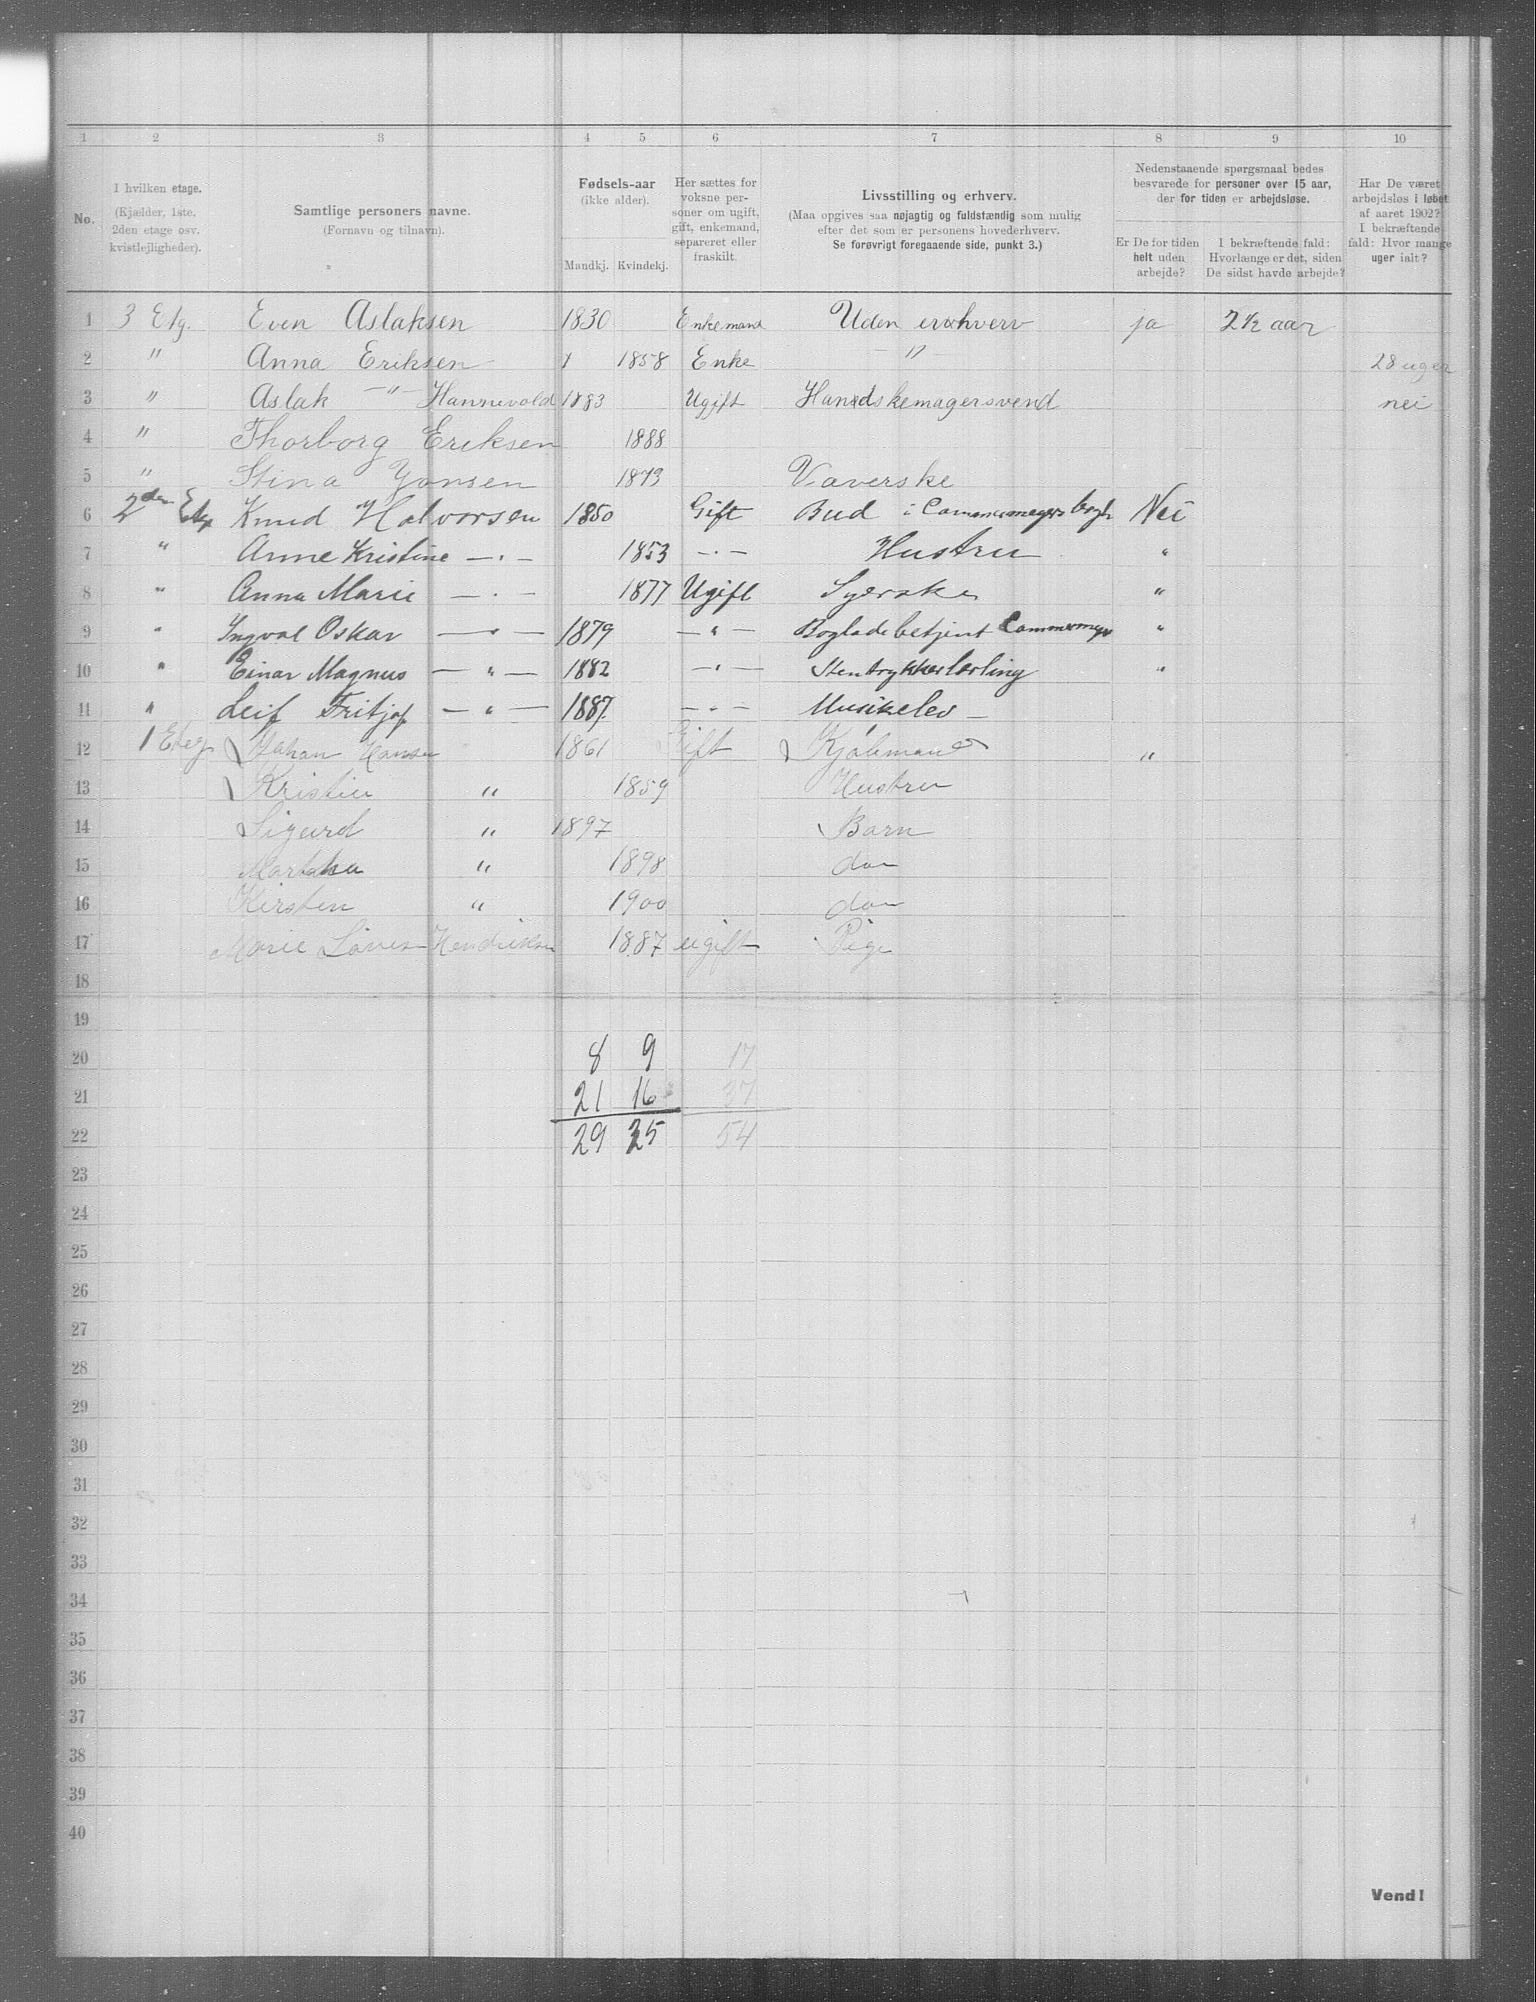 1 2 3 4 5 6 7 8 9 10
No.
I hvilken etage.
(Kjælder, 1ste.
2den etage osv.
kvistlejligheder).
Samtlige personers navne.
(Fornavn og tilnavn).
Fødsels-aar
(ikke alder).
Mandkj. Kvindekj.
Her sættes for
voksne per-
soner om ugift,
gift, enkemand,
separeret eller
fraskilt.
Livsstilling og erhverv.
(Maa opgives saa nøjagtig og fuldstændig som mulig
efter det som er personens hovederhverv.
Se forøvrigt foregaaende side, punkt 3.)
Nedenstaaende spørgsmaal bedes
besvarede for personer over 15 aar,
der for tiden er arbejdsløse.
Er De for tiden
helt uden
arbejde?
I bekræftende fald:
Hvorlænge er det, siden
De sidst havde arbejde?
Har De været
arbejdsløs i løbet
af aaret 1902?
I bekræftende
fald: Hvor mange
uger ialt?
1 3 Etg. Even Aslaksen 1830 Enkemand Uden erhverv ja 2 1/2 aar
2 " Anna Eriksen 1 1858 Enke — " — 28 uger
3 " Aslak — " — Hannevold 1883 Ugift Handskemagersvend nei
4 " Thorborg Eriksen 1888
5 " Stina Yonsen 1873 Væverske
6 2den Etg Knud Halvorsen 1850 Gift Bud i Cammermeyers bogh Nei
7 " Anne Kristine — " — 1853 — " — Hustru "
8 " Anna Marie — " — 1877 Ugift Syerske "
9 " Ingval Oskar — " — 1879 — " — Boglade betjent Cammermeyr "
10 " Einar Magnus — " — 1882 — " — Stentrykkerlærling "
11 " Leif Fritjof — " — 1887 — " — Musikelev —
12 1 Eteg Johan Hansen 1861 Gift Kjøbmand "
13 Kristin " 1859 Hustru
14 Sigurd " 1897 Barn
15 Martha " 1898 do
16 Kirsten " 1900 do
17 Marie Hendriksen 1887 ugift Pige
18
19
20 8 9 17
21 21 16 37
22 29 25 54
23
24
25
26
27
28
29
30
31
32
33
34
35
36
37
38
39
40
Vend!